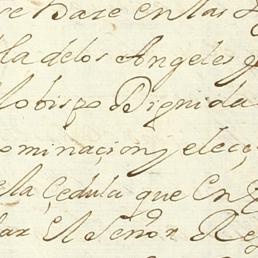 se haze en las
la delos Angeles
obispo Dignida
ominaçion y elecç
ella çedula que en
El Señor Re